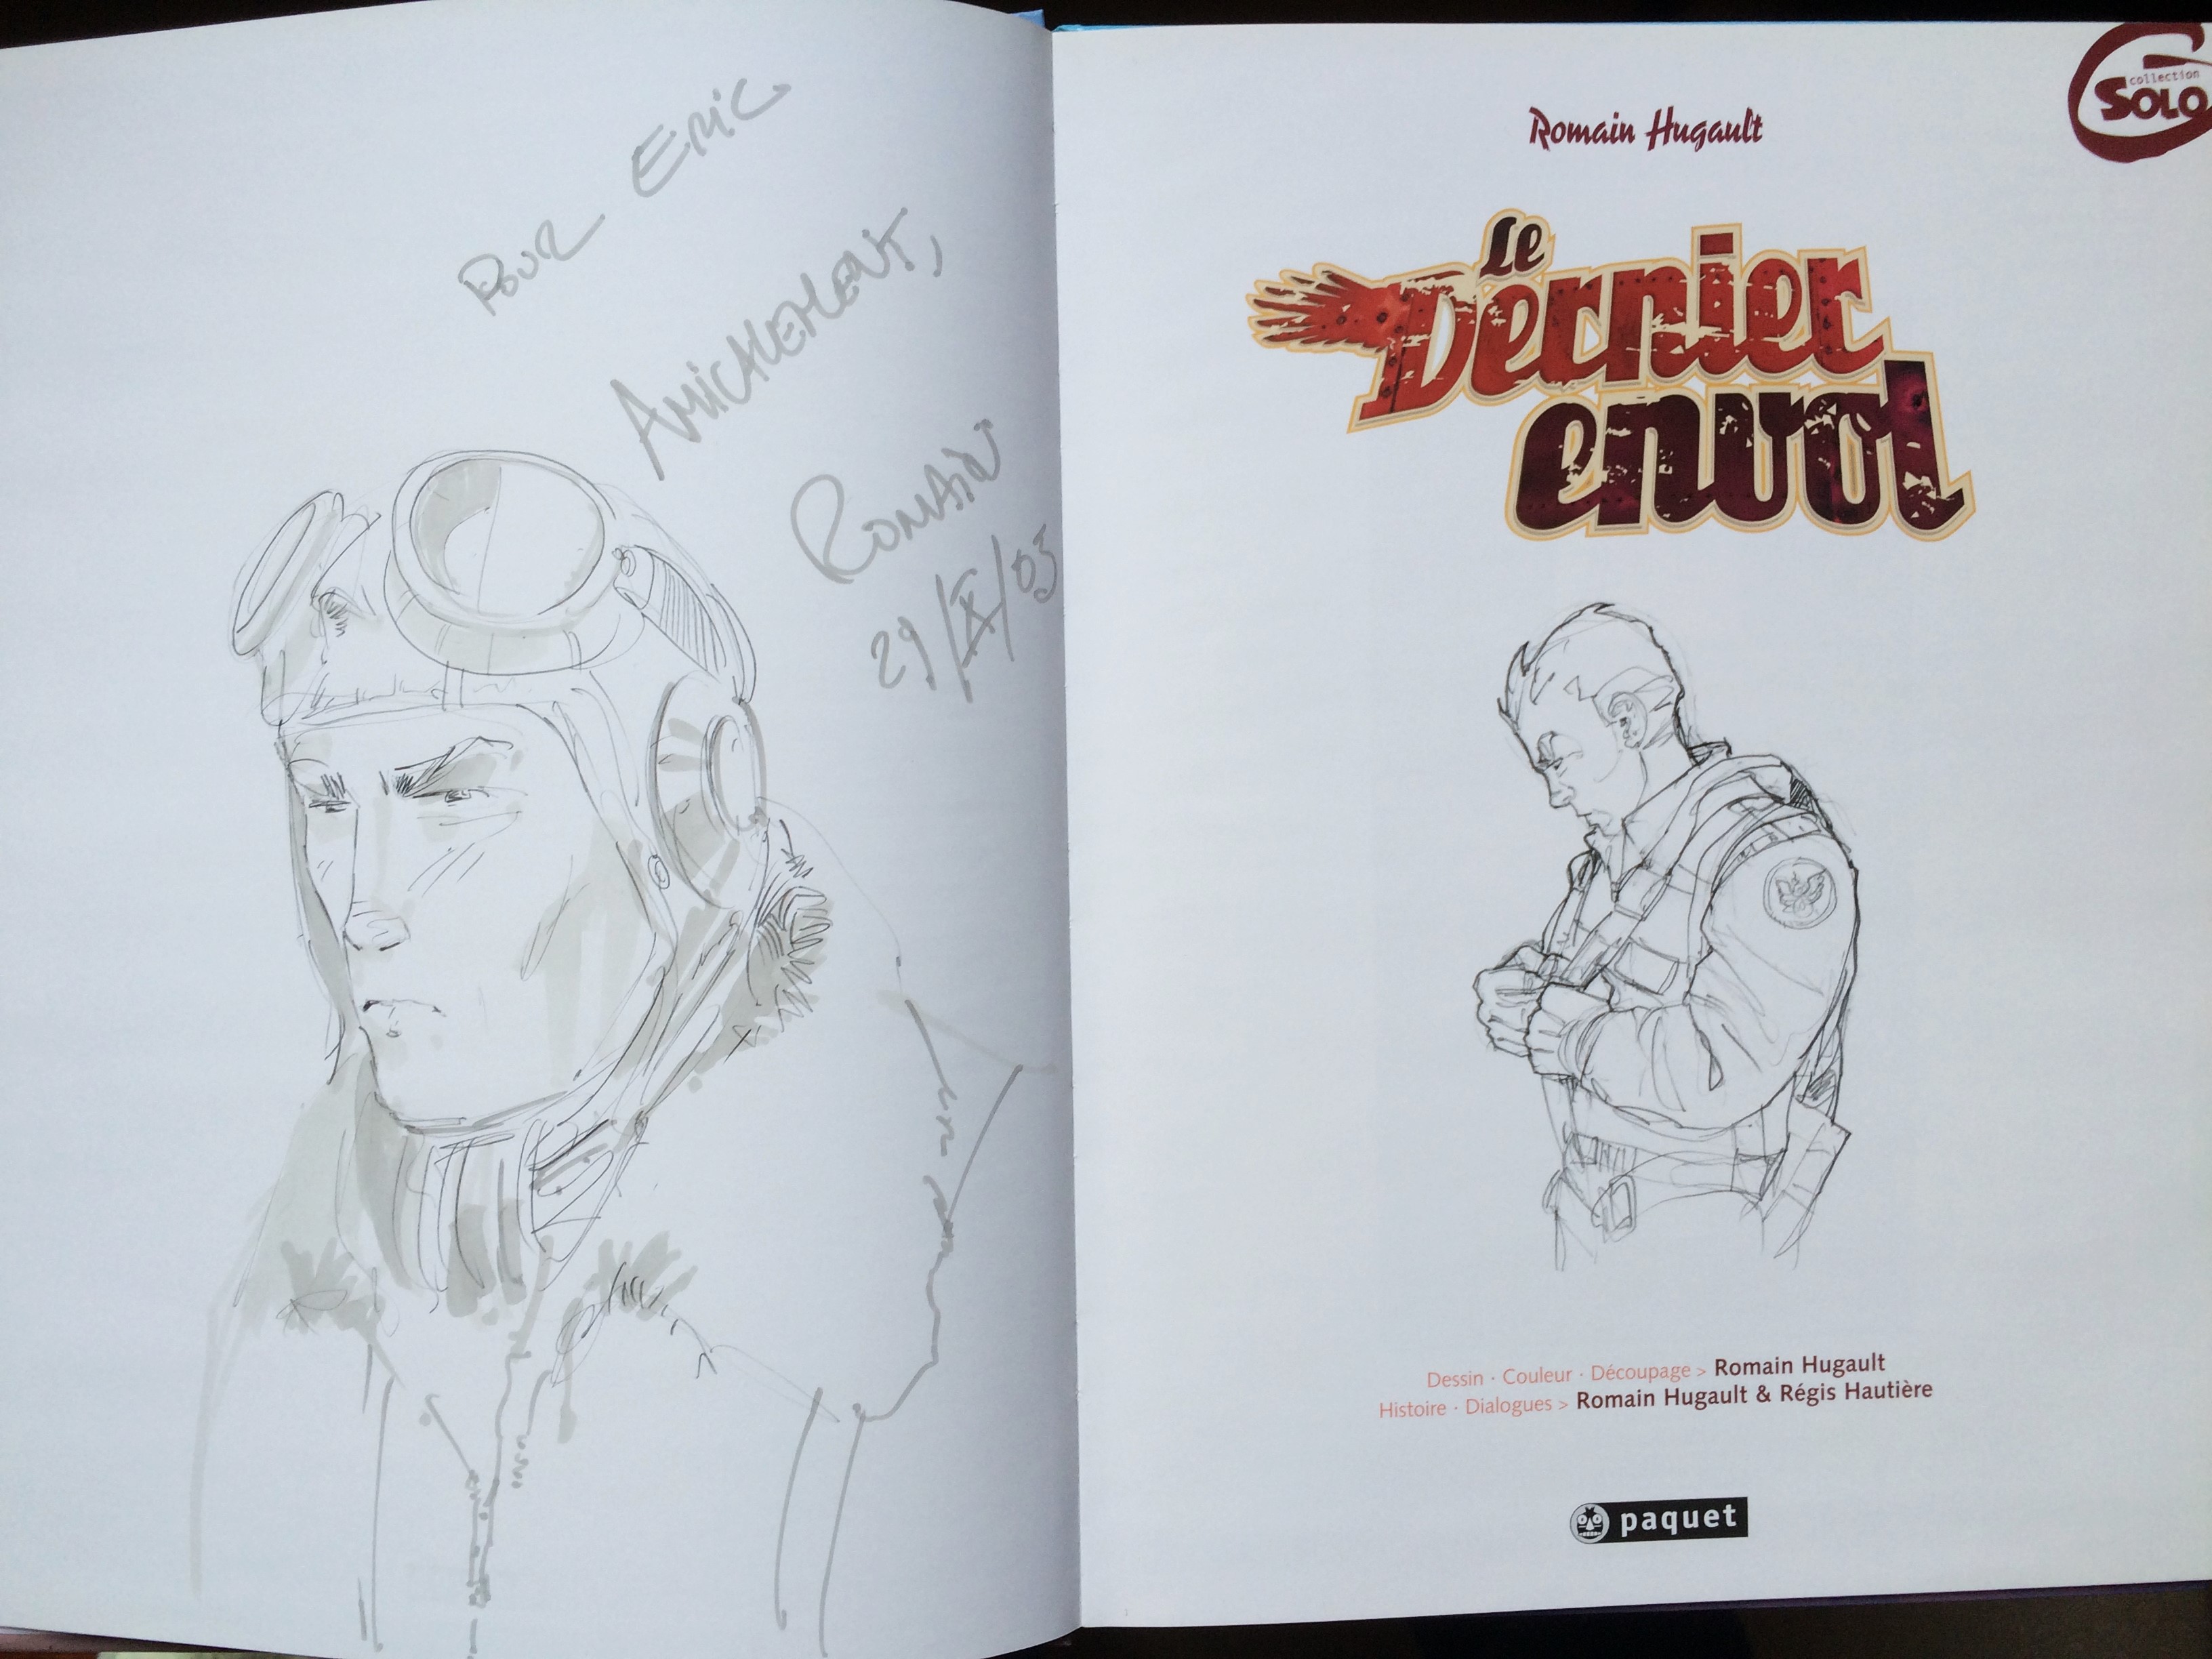 Pour Eric
Amicalement,
Romain
29/X/05
collection
SOLO
Romain Hugault
Le
Dernier
envol
Dessin · Couleur · Découpage > Romain Hugault
Histoire · Dialogues > Romain Hugault & Régis Hautière
paquet